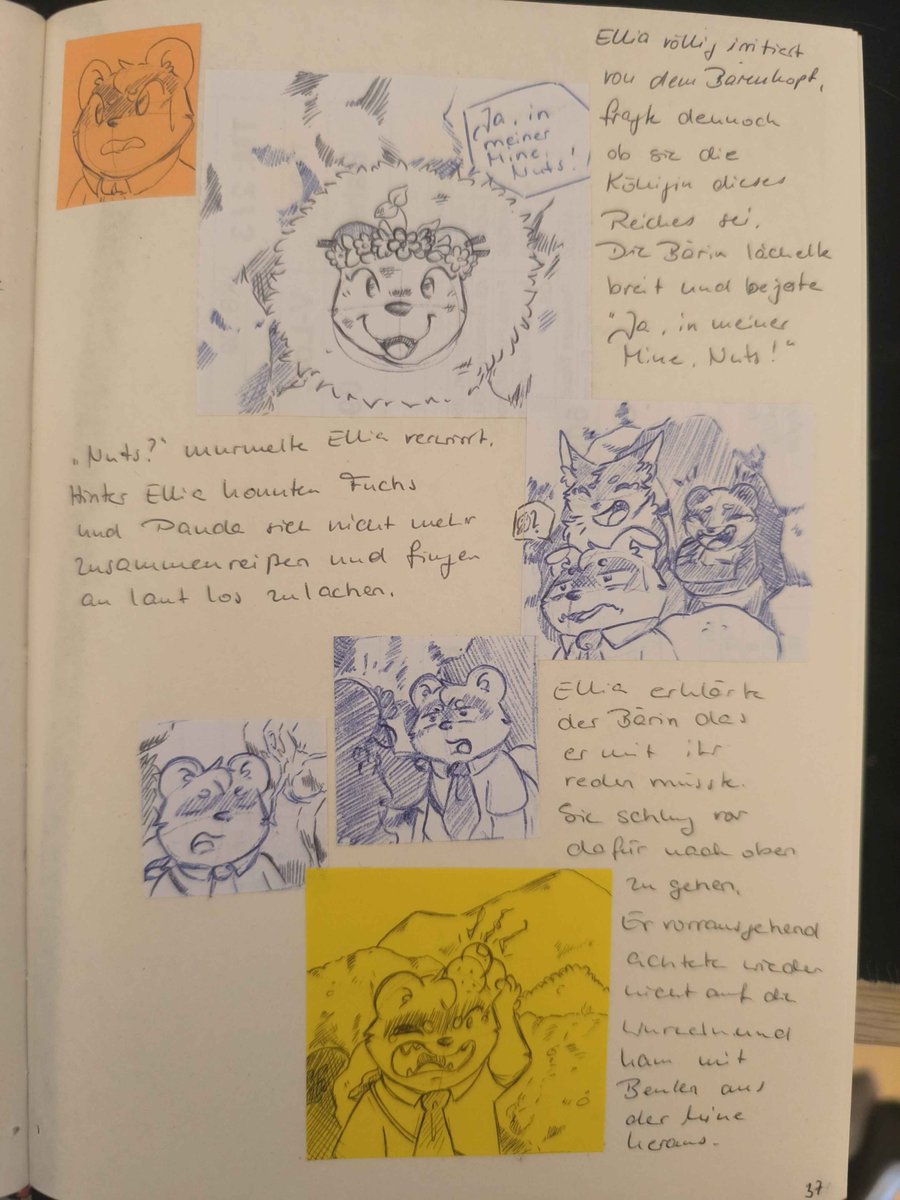 Ellia völlig irritiert
von dem Bärenkopf,
fragte dennoch
ob sie die
Königin dieses
Reiches sei.
Die Bärin lächelte
breit und bejate
"Ja, in meiner
Mine, Nuts!"
Ja, in
meiner
Mine,
Nuts!
„Nuts?" murmelte Ellia verwirrt.
Hinter Ellia konnten Fuchs
und Panda sich nicht mehr
zusammenreißen und fingen
an laut los zulachen.
Ellia erklärte
der Bärin das
er mit ihr
reden müsste.
Sie schlug vor
dafür nach oben
zu gehen.
Er vorrausgehend
achtete wieder
nicht auf die
Wurzeln und
kam mit
Beulen aus
der Mine
heraus.
37